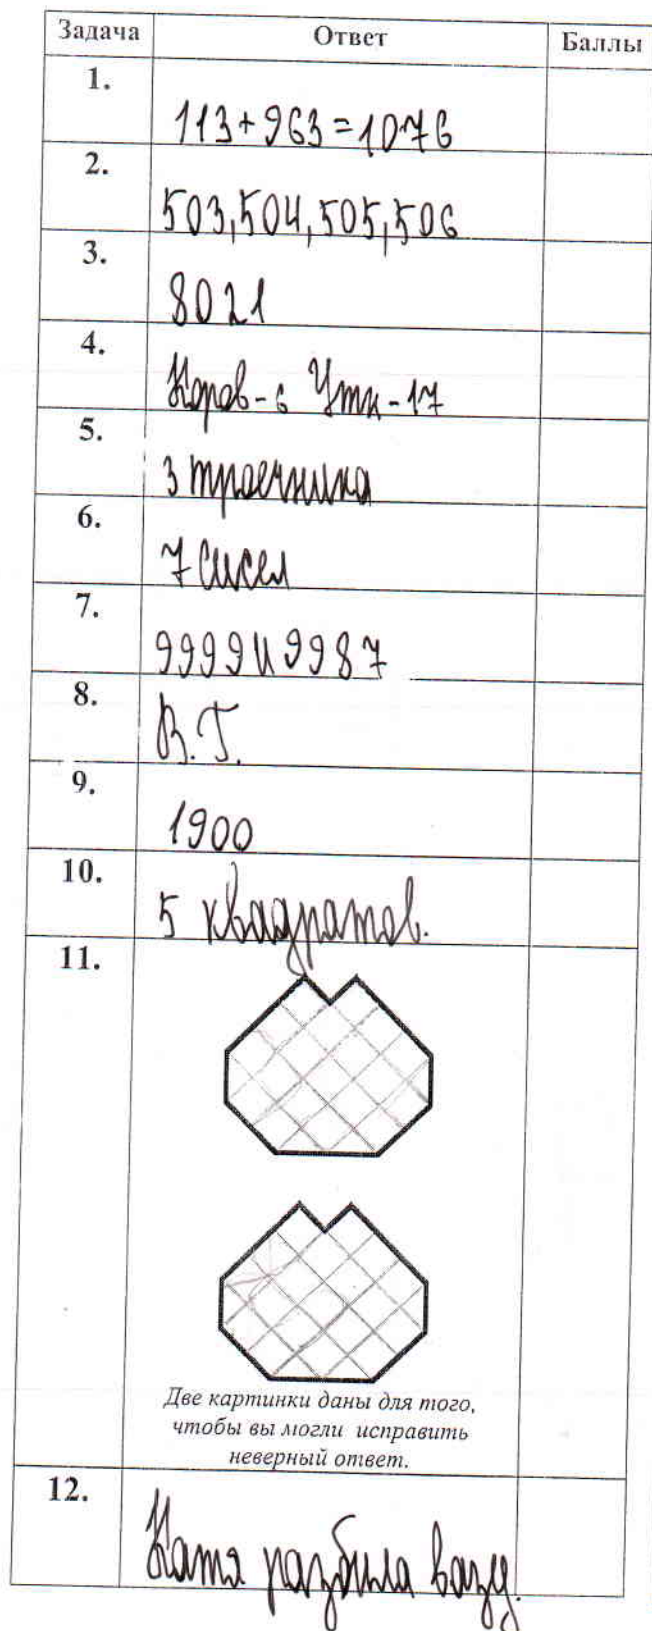 Задача Ответ Баллы
1. 113+963=1076
2. 503,504,505,506
3. 8021
4. Коров-6 Утк-17
5. 3 троечника
6. 7 сисел
7. 9999 и 9987
8. В.Г.
9. 1900
10. 5 квадратов.
11.
Две картинки даны для того,
чтобы вы могли исправить
неверный ответ.
12. Катя разбила вазу.